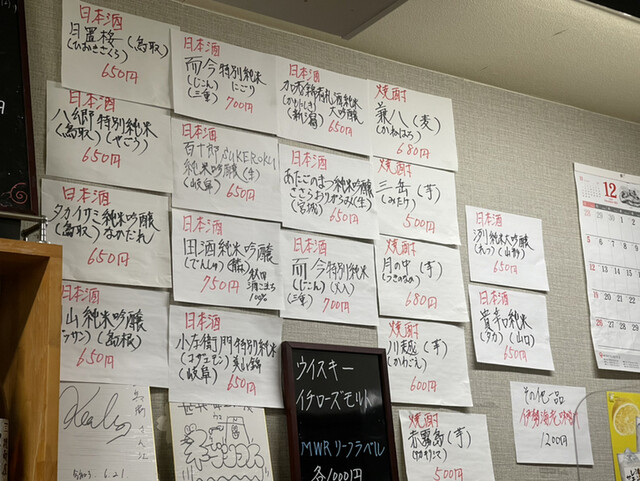 日本酒
日置桜(鳥取)
(ひおきざくら)
650円
日本酒
八郷特別純米
(鳥取)(やごう)
650円
日本酒
タカイサミ純米吟醸
(鳥取)なかだれ
650円
日本酒
山 純米吟醸
(島根)
650円
日本酒
而今特別純米
(じこん) にごり
(三重) 700円
日本酒
百十郎 SUKEROKU
純米吟醸(生)
(岐阜) 650円
日本酒
田酒純米吟醸
(でんしゅ)
750円
100%
日本酒
小左衛門特別純米
(コザエモン)美山錦
(岐阜) 650円
日本酒
純米
大吟醸
(新潟) 650円
日本酒
あたごのまつ純米吟醸
ささらおりがらみ(生)
(宮城) 650円
日本酒
而今特別純米
(じこん)(火入)
(三重) 700円
焼酎
兼八(麦)
(かねはち)
680円
焼酎
三岳(芋)
(みたけ)
500円
焼酎
月の中(芋)
(つきのなか)
680円
焼酎
川越(芋)
(かわごえ)
600円
焼酎
赤霧島(芋)
500円
日本酒
洌純米大吟醸
(れつ)(山形)
650円
日本酒
貴 純米
(タカ)(山口)
650円
その他一品
1200円
ウイスキー
イチローズモルト
MWRリーフラベル
各1000円
6.21
12